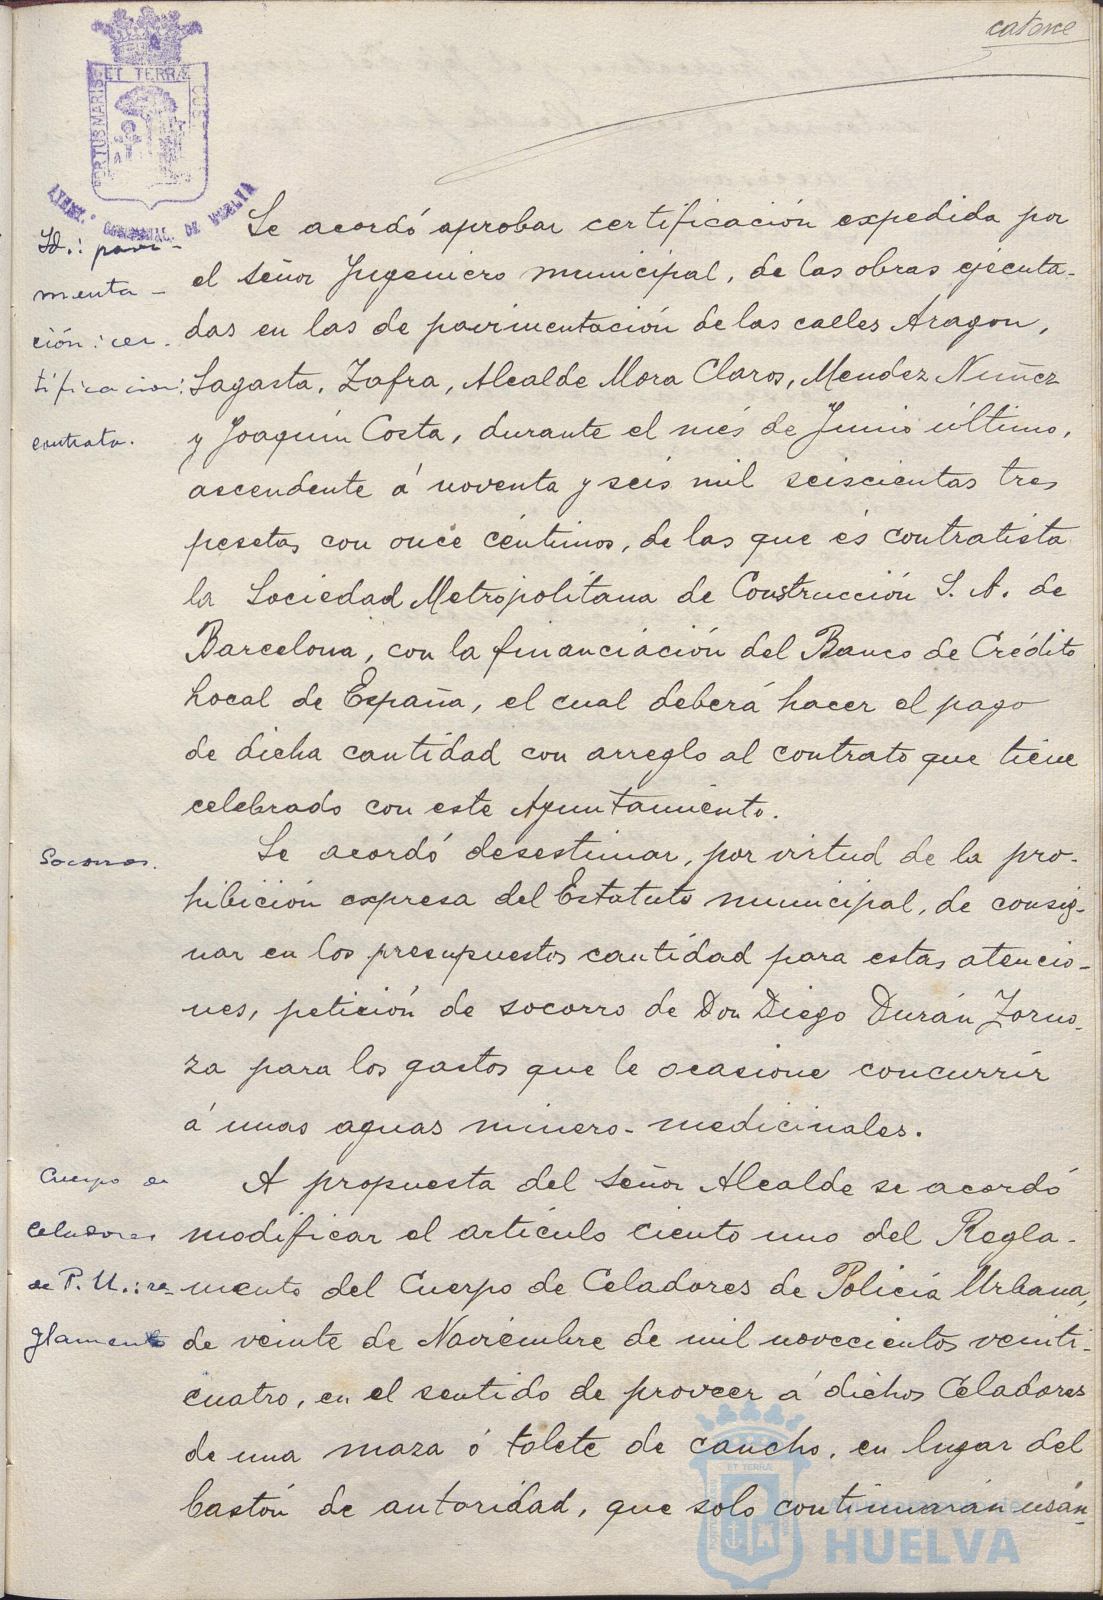 catorce
ET TERRÆ
PORTUS MARIS
CUSTODIA
AYUNT.º
DE HUELVA
Id.: pavi-
menta-
ción: cer-
tificacion:
contrata.
Se acordó aprobar certificación expedida por
el señor Yngeniero municipal, de las obras ejecuta-
das en las de pavimentación de las calles Aragon,
Sagasta, Zafra, Alcalde Mora Claros, Mendez Nuñez
y Joaquín Costa, durante el més de Junio último,
ascendente á noventa y seis mil seiscientas tres
pesetas con once céntimos, de las que és contratista
la Sociedad Metropolitana de Construcción S. A. de
Barcelona, con la financiación del Banco de Crédito
Local de España, el cual deberá hacer el pago
de dicha cantidad con arreglo al contrato que tiene
celebrado con este Ayuntamiento.
Socorros.
Se acordó desestimar, por virtud de la pro-
hibición expresa del Estatuto municipal, de consig-
nar en los presupuestos cantidad para estas atencio-
nes, petición de socorro de Don Diego Durán Zorno-
za para los gastos que le ocasione concurrir
á unas aguas minero-medicinales.
Cuerpo de
Celadores
de P. U.: re-
glamento
A propuesta del señor Alcalde se acordó
modificar el artículo ciento uno del Regla-
mento del Cuerpo de Celadores de Policía Urbana,
de veinte de Noviembre de mil novecientos veinti-
cuatro, en el sentido de proveer á dichos Celadores
de una maza ó tolete de caucho, en lugar del
bastón de autoridad, que solo continuarán usán-
ET TERRÆ
Ayuntamiento de
HUELVA